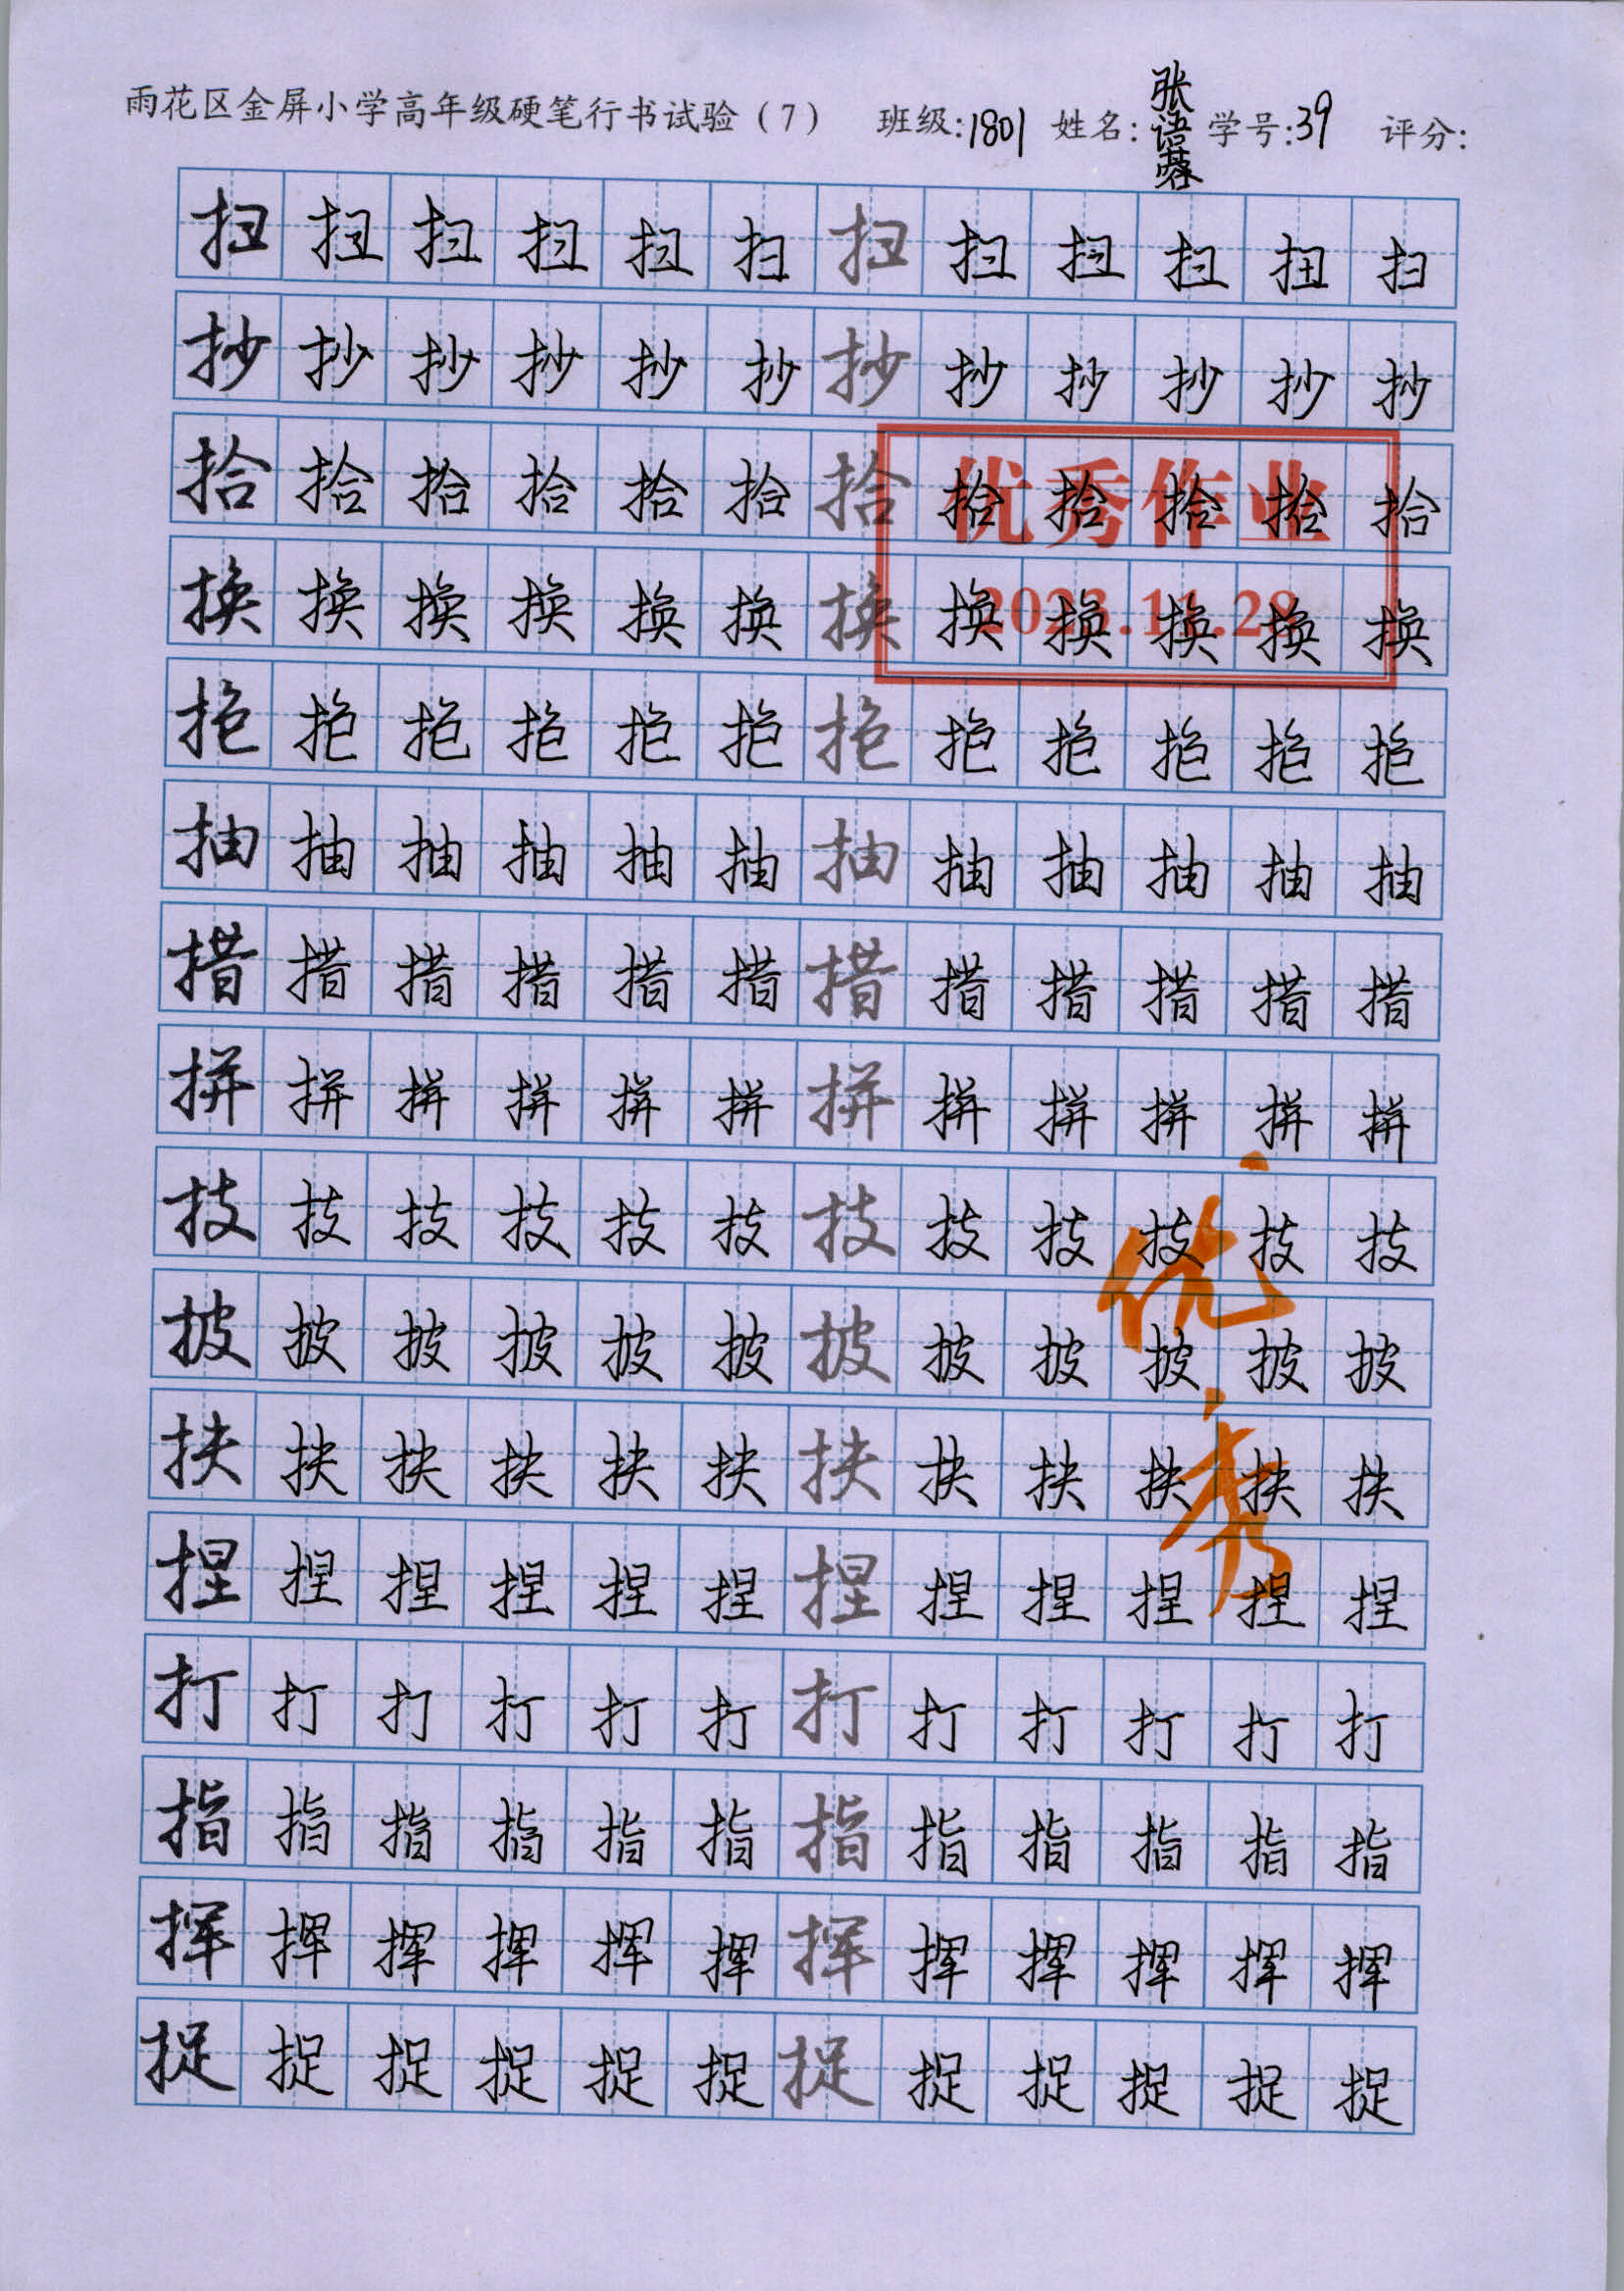 雨花区金屏小学高年级硬笔行书试验（7） 班级:1801 姓名:张语蓉 学号:39 评分:
扫扫扫扫扫扫扫扫扫扫扫扫
抄抄抄抄抄抄抄抄抄抄抄抄
拾拾拾拾拾拾拾拾拾拾拾拾
优秀作业
换换换换换换换换换换换换
2023.11.28
抱抱抱抱抱抱抱抱抱抱抱抱
抽抽抽抽抽抽抽抽抽抽抽抽
措措措措措措措措措措措措
拼拼拼拼拼拼拼拼拼拼拼拼
技技技技技技技技技技技技
披披披披披披披披披披披披
优秀
扶扶扶扶扶扶扶扶扶扶扶扶
捏捏捏捏捏捏捏捏捏捏捏捏
打打打打打打打打打打打打
指指指指指指指指指指指指
挥挥挥挥挥挥挥挥挥挥挥挥
捉捉捉捉捉捉捉捉捉捉捉捉